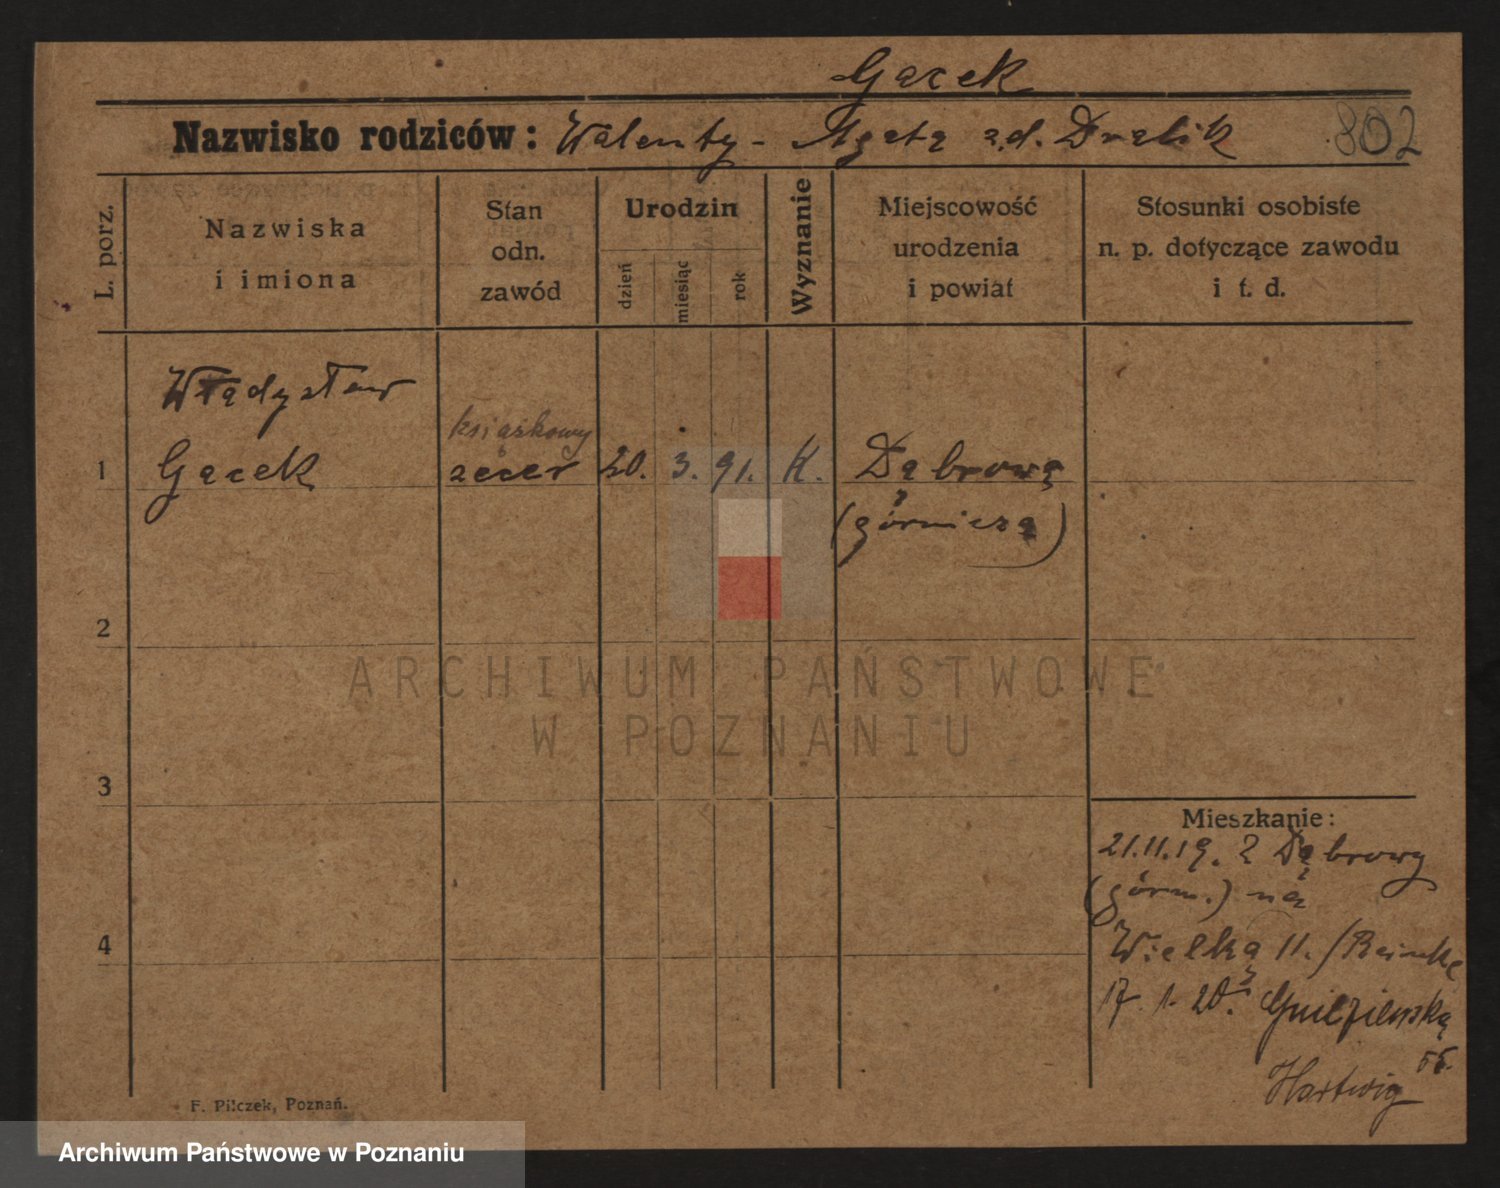 Gącek
Nazwisko rodziców: Walenty - Agata z.d. Dralik
802
L. porz.
Nazwiska
i imiona
Stan
odn.
zawód
Urodzin
dzień
miesiąc
rok
Wyznanie
Miejscowość
urodzenia
i powiat
Stosunki osobiste
n. p. dotyczące zawodu
i t. d.
Władysław
książkowy
1 Gącek zecer 20. 3. 91. K. Dąbrowa
(górnicza)
2
ARCHIWUM PAŃSTWOWE
W POZNANIU
3
Mieszkanie:
21.11.19. z Dąbrowy
(górn.) na
4
Wielka 11. /Reinke
17. 1. 20. Gnieźnieńska
55.
Hartwig
F. Pilczek, Poznań.
Archiwum Państwowe w Poznaniu